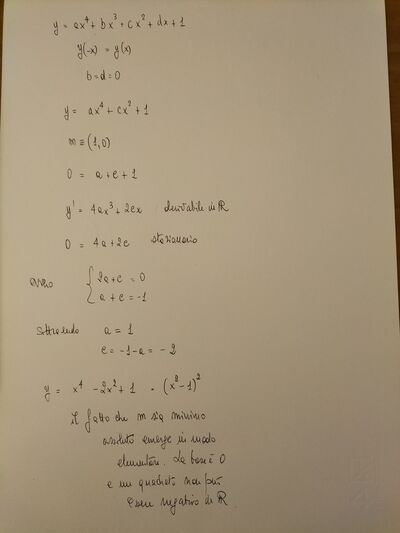 y = ax⁴ + bx³ + cx² + dx + 1
y(-x) = y(x)
b = d = 0
y = ax⁴ + cx² + 1
m ≡ (1,0)
0 = a + c + 1
y' = 4ax³ + 2cx derivabile in ℝ
0 = 4a + 2c stazionario
ovvero { 2a + c = 0
a + c = -1
sottraendo a = 1
c = -1 - a = -2
y = x⁴ - 2x² + 1 = (x² - 1)²
il fatto che m sia minimo
assoluto emerge in modo
elementare. La base è 0
e un quadrato non può
essere negativo in ℝ